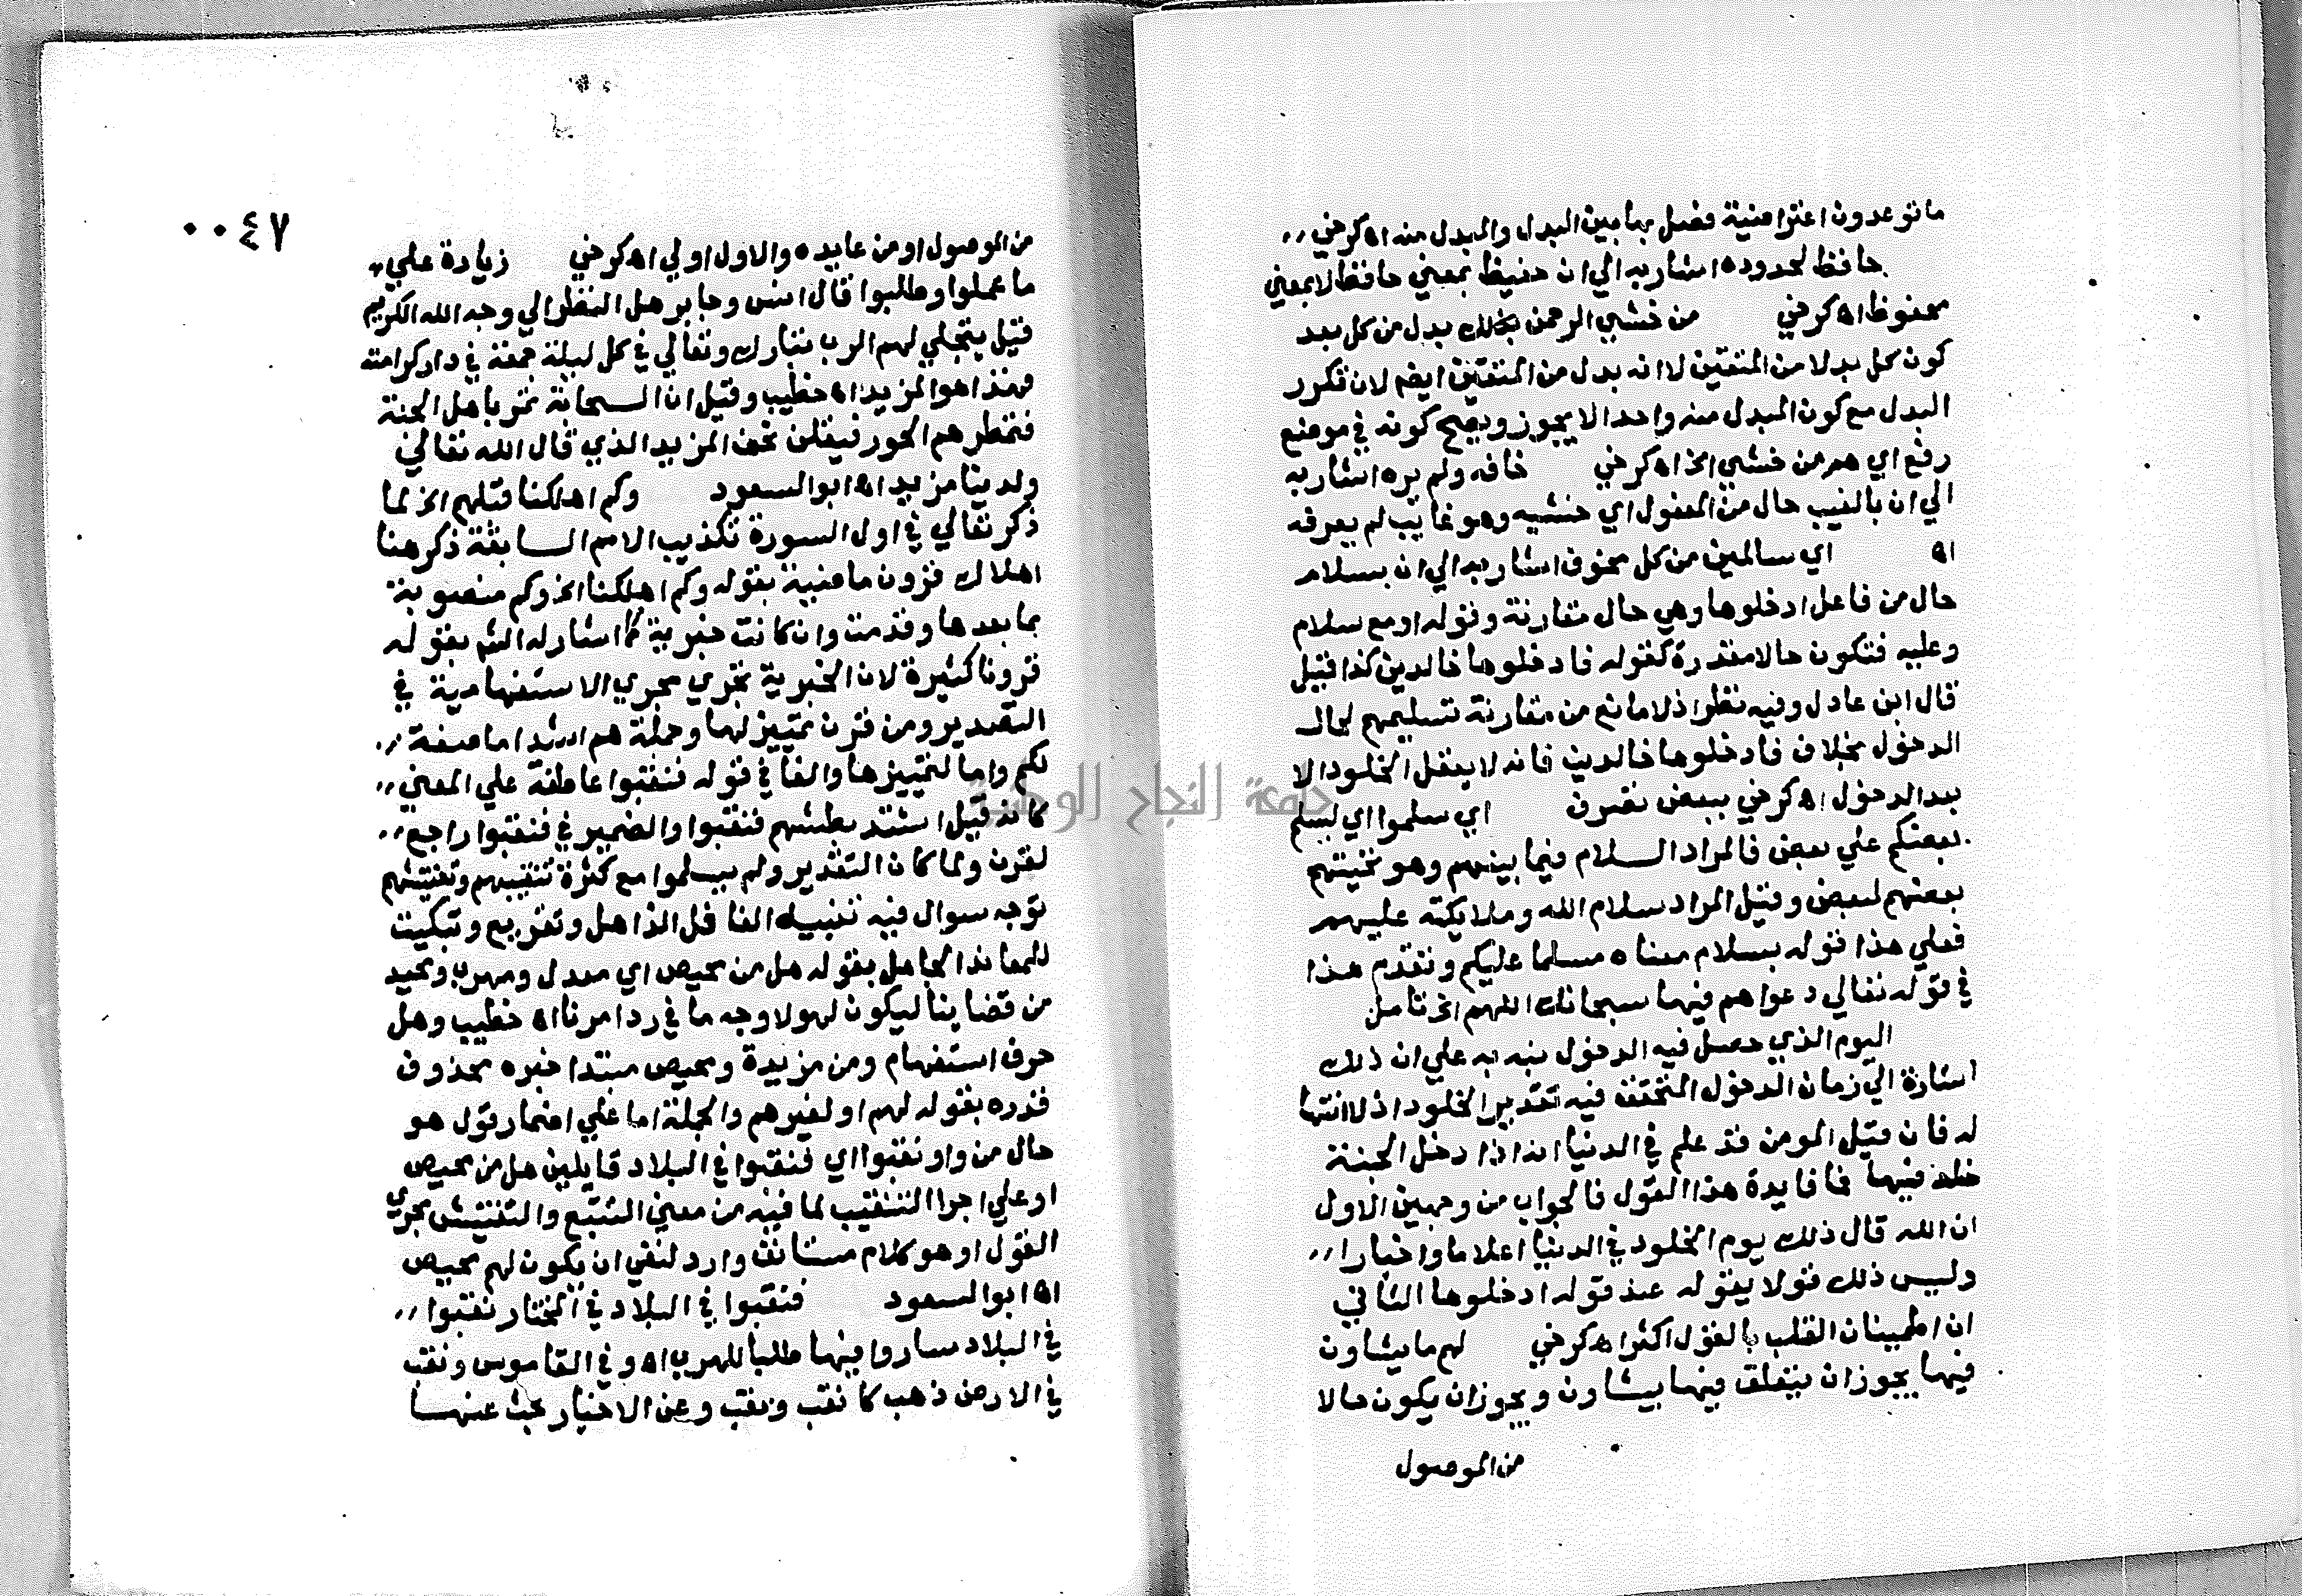 ما توعدون اعتراضية فصل بها بين البدل والمبدل منه اه كرخي
حافظ لحدوده اشار به الي ان حفيظ بمعني حافظ لا بمعني
محفوظ اه كرخي من خشي الرحمن بدل من كل بعد
كون كل بدلا من المتقين لا انه بدل من المتقين ايضا لان تكرر
البدل مع كون المبدل منه واحدا لا يجوز ويصح كونه في موضع
رفع اي هم من خشي الخ اه كرخي خافه ولم يره اشار به
الي ان بالغيب حال من المفعول اي خشيه وهو غايب لم يعرفه
اه اي سالمين من كل مخوف اشار به الي ان بسلام
حال من فاعل ادخلوها وهي حال مقارنة وقوله او مع سلام
وعليه فتكون حالا مقدرة كقوله فادخلوها خالدين كذا قيل
قال ابن عادل وفيه نظر اذ لا مانع من مقارنة تسليمهم لحال
الدخول بخلاف فادخلوها خالدين فانه لا يعقل الخلود الا
بعد الدخول اه كرخي ببعض تصرف اي سلموا اي ليسلم
بعضكم علي بعض فالمراد السلام فيما بينهم وهو تحيتهم
بعضهم لبعض وقيل المراد سلام الله وملايكته عليهم
فعلي هذا قوله بسلام معناه مسلما عليكم وتقدم هذا
في قوله تعالي دعواهم فيها سبحانك اللهم الخ تامل
اليوم الذي حصل فيه الدخول نبه به علي ان ذلك
اشارة الي زمان الدخول المتحققة فيه تقدير الخلود اذ لا انتها
له فان قيل المومن قد علم في الدنيا انه اذا دخل الجنة
خلد فيها فما فايدة هذا القول فالجواب من وجهين الاول
ان الله قال ذلك يوم الخلود في الدنيا اعلاما واخبارا
وليس ذلك قولا يقوله عند قوله ادخلوها الثاني
ان اطمينان القلب بالقول اكثر اه كرخي لهم ما يشاون
فيها يجوز ان يتعلق فيها بيشاون ويجوز ان يكون حالا
من الموصول
٠٠٤٧
من الموصول او من عايده والاول اولي اه كرخي زيادة علي
ما عملوا وطلبوا قال انس وجابر هل النظر الي وجه الله الكريم
قيل يتجلي لهم الرب تبارك وتعالي في كل ليلة جمعة في دار كرامته
فهذا هو المزيد اه خطيب وقيل ان السحابة تمر باهل الجنة
فتمطرهم الحور فيقلن نحن المزيد الذي قال الله تعالي
ولدينا مزيد اه ابو السعود وكم اهلكنا قبلهم الخ لما
ذكر تعالي في اول السورة تكذيب الامم السابقة ذكر هنا
اهلاك قرون ماضية بقوله وكم اهلكنا الخ وكم منصوبة
بما بعدها وقدمت وان كانت خبرية كما اشار له الشم بقوله
قرونا كثيرة لان الخبرية تجري مجري الاستفهامية في
التصدير ومن قرن تمييز لها وجملة هم اشد اما صفة
لكم واما لتمييزها والفا في قوله فنقبوا عاطفة علي المعني
كانه قيل اشتد بطشهم فنقبوا والضمير في فنقبوا راجع
لقرن ولما كان التقدير ولم يسلموا مع كثرة تنقيبهم وتفتيشهم
توجه سوال فيه تنبيه الغافل الذاهل وتقريع وتبكيت
للمعاند الجاهل بقوله هل من محيص اي معدل ومهرب ومحيد
من قضاينا ليكون لهولا وجه ما في رد امرنا اه خطيب وهل
حرف استفهام ومن مزيدة ومحيص مبتدا خبره محذوف
قدره بقوله لهم او لغيرهم والجملة اما علي اضمار قول هو
حال من واو نقبوا اي فنقبوا في البلاد قايلين هل من محيص
او علي اجرا التنقيب لما فيه من معني التتبع والتفتيش مجري
القول او هو كلام مستانف وارد لنفي ان يكون لهم محيص
اه ابو السعود فنقبوا في البلاد في المختار نقبوا
في البلاد ساروا فيها طلبا للمهرب اه وفي القاموس ونقب
في الارض ذهب كانقب ونقب وعن الاخبار بحث عنها
جامعة النجاح الوطنية